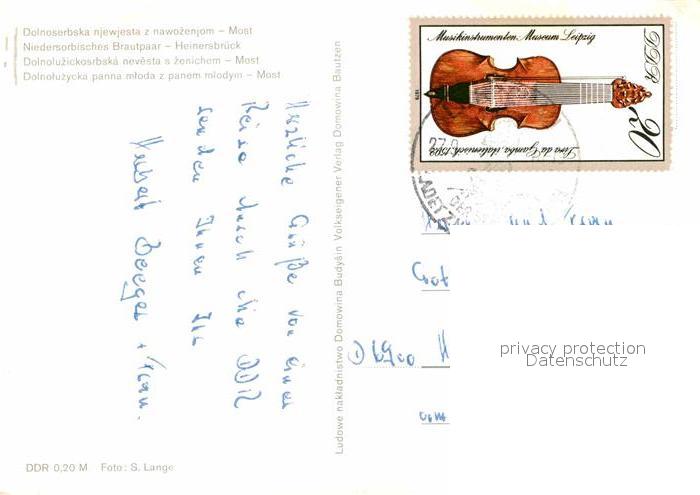 Dolnoserbska njewjesta z nawoženjom – Most
Niedersorbisches Brautpaar – Heinersbrück
Dolnolužickosrbská nevěsta s ženichem – Most
Dolnołużycka panna młoda z panem młodym – Most
Musikinstrumenten-Museum Leipzig
DDR
1979
20
Lira da Gamba, italienisch, 1592
Herzliche Grüße von einer
Reise durch die DDR
senden Ihnen Ihr
Herbert Berger + Frau.
Ludowe nakładnistwo Domowina Budyšin Volkseigener Verlag Domowina Bautzen
und Frau
D 6900 H
privacy protection
Datenschutz
DDR 0,20 M Foto: S. Lange